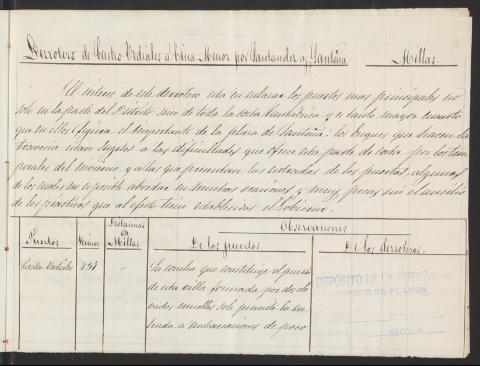 Derrotero de Castro Urdiales á Tina Menor por Santander y Santoña
Millas.
El interes de este derrotero esta en enlazar los puestos mas principales no
solo en la parte del Distrito sino de toda la costa Cantábrica y es tanto mayor cuanto
que en ellos figura el importante de la plaza de Santoña: los buques que hacen la
travesia estan sugetos a las dificultades que ofrece esta parte de costa por los tem
porales del invierno, y a las que presentan las entradas de los puertos, algunos
de los cuales no es posible abordar en muchas ocasiones y muy pocas sin el auxilio
de los practicos que al efecto tiene establecidos el Gobierno.
Observaciones
Puertos
Distancias en Millas
De los puertos
De los derroteros.
Castro Urdiales
La concha que constituye el puerto
de esta villa formada por dos ele
vados muelles solo permite la en
trada a embarcaciones de poco
DEPÓSITO DE LA GUERRA
ARCHIVO DE PLANOS
SECCIÓN